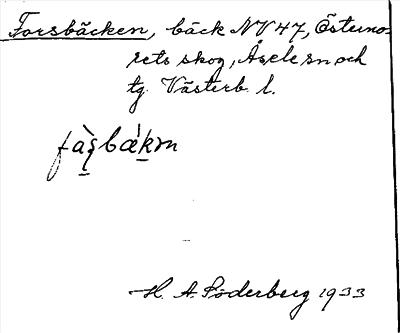 Forsbäcken, bäck NV 47, Östeno-
rets skog, Åsele sn och
tg. Västerb. l.
fàʂbækm
H. A. Söderberg 1933